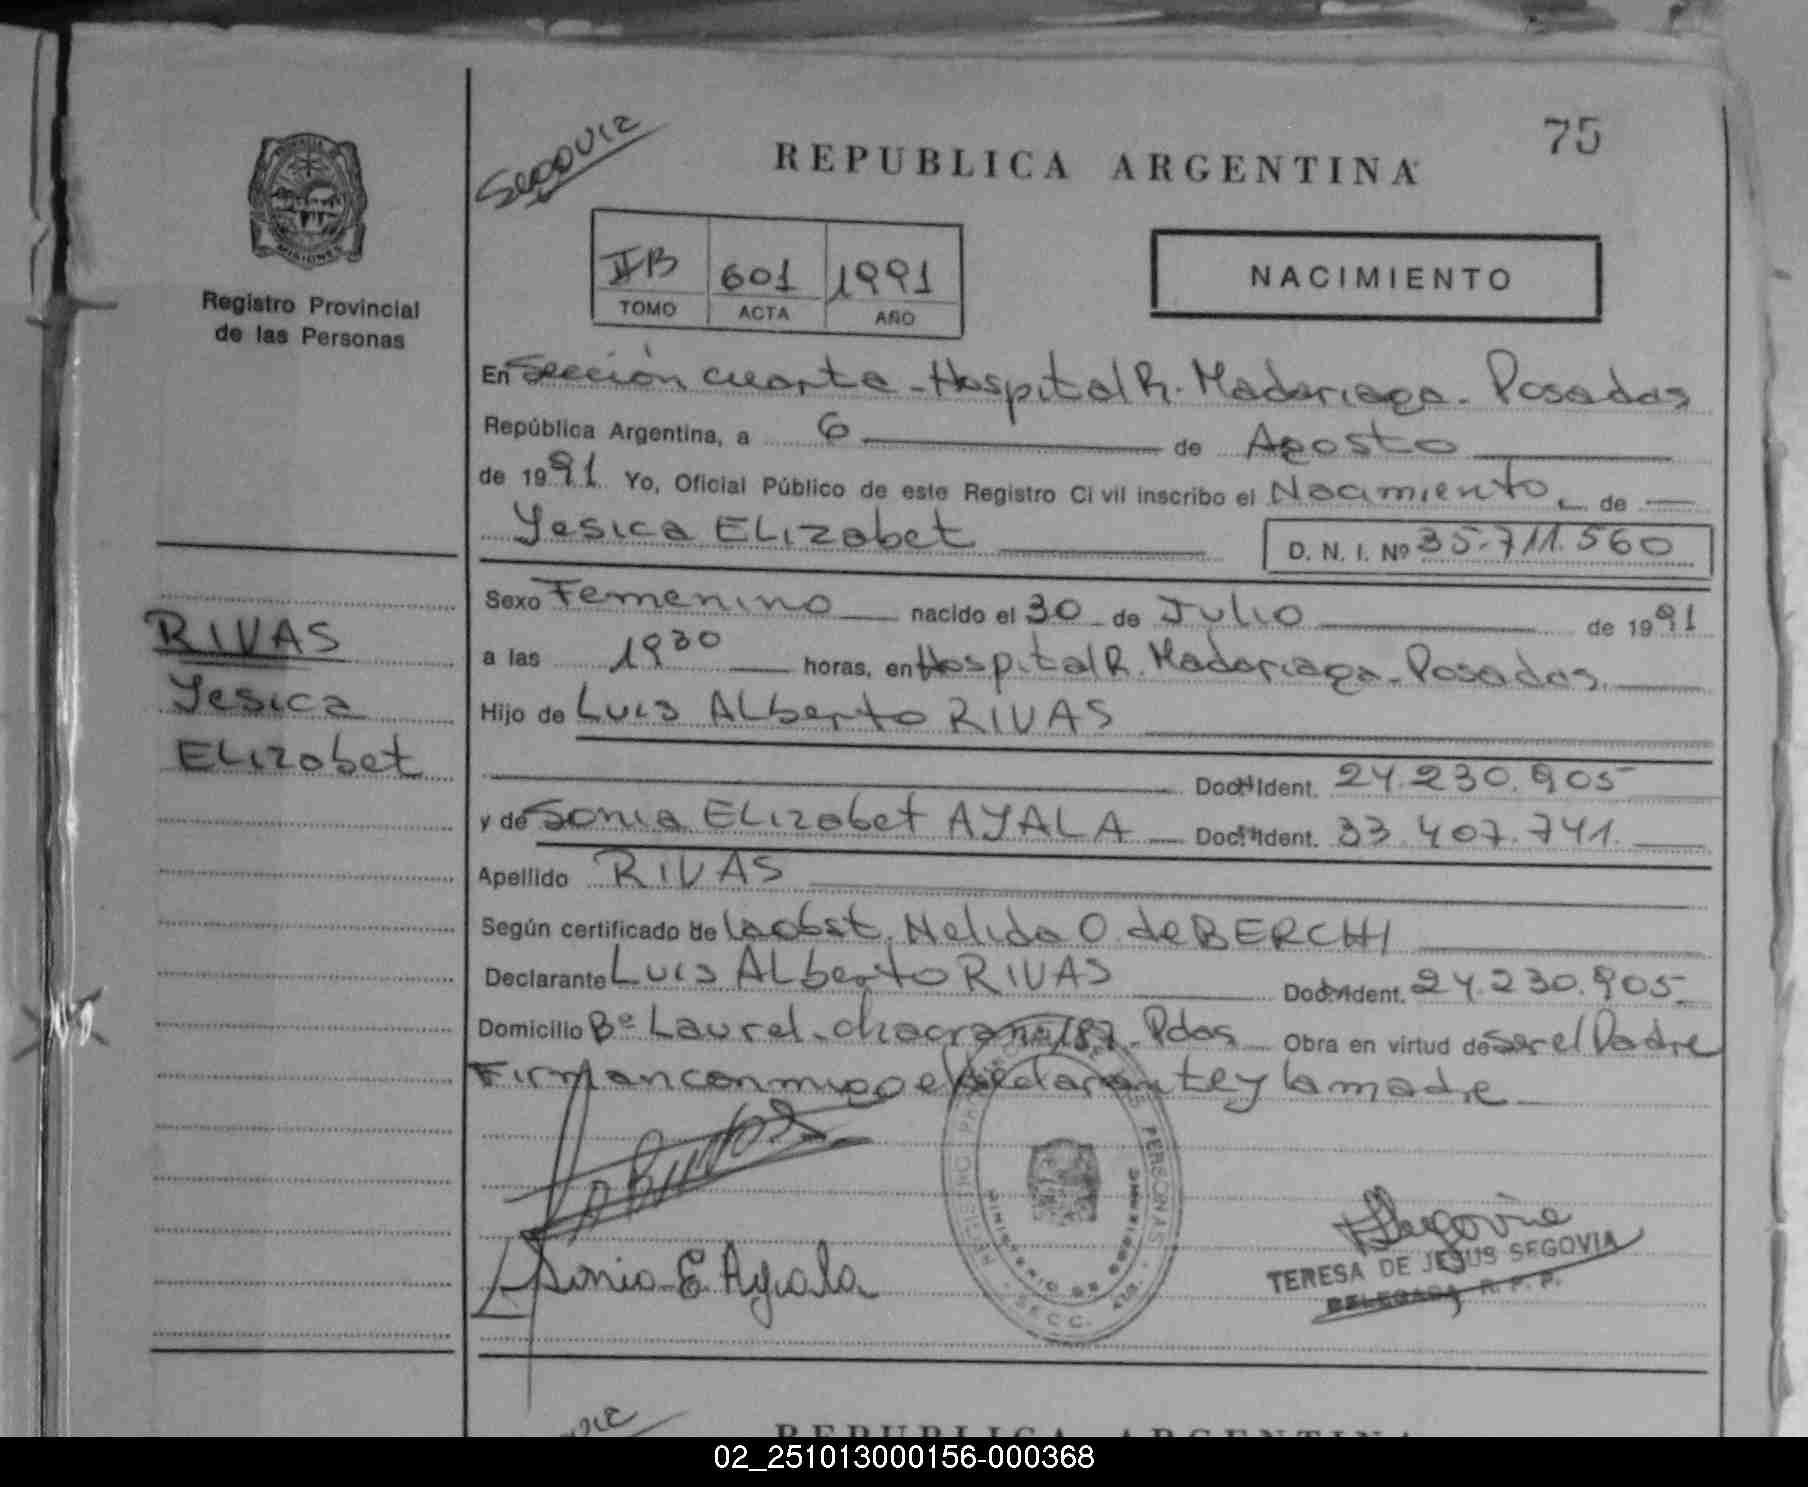 75
Segovia
REPUBLICA ARGENTINA
MISIONES
Registro Provincial
de las Personas
IIB 601 1991
TOMO ACTA AÑO
NACIMIENTO
En Sección cuarta - Hospital R. Madariaga - Posadas
República Argentina, a 6 de Agosto
de 1991 Yo, Oficial Público de este Registro Civil inscribo el Nacimiento de
Yesica ELizabet D. N. I. Nº 35.711.560
Sexo Femenino nacido el 30 de Julio de 1991
a las 19 30 horas, en Hospital R. Madariaga - Posadas
Hijo de Luis ALberto RIVAS
Doc. Ident. 24.230.905
y de Sonia ELizabet AYALA Doc. Ident. 33.407.741.
Apellido RIVAS
Según certificado de la obst. Nelida O. de BERCHI
Declarante Luis ALberto RIVAS Doc. Ident. 24.230.905
Domicilio Bº Laurel - chacra nº 187 - Pdas Obra en virtud de ser el Padre
Firman conmigo el declarante y la madre
RIVAS
Yesica
ELizabet
Sonia E Ayala
PERSONAS
MINISTERIO DE GOBIERNO
SECC. 4ta.
TSegovia
TERESA DE JESUS SEGOVIA
DELEGADA R. P. P.
REPUBLICA ARGENTINA
02_251013000156-000368